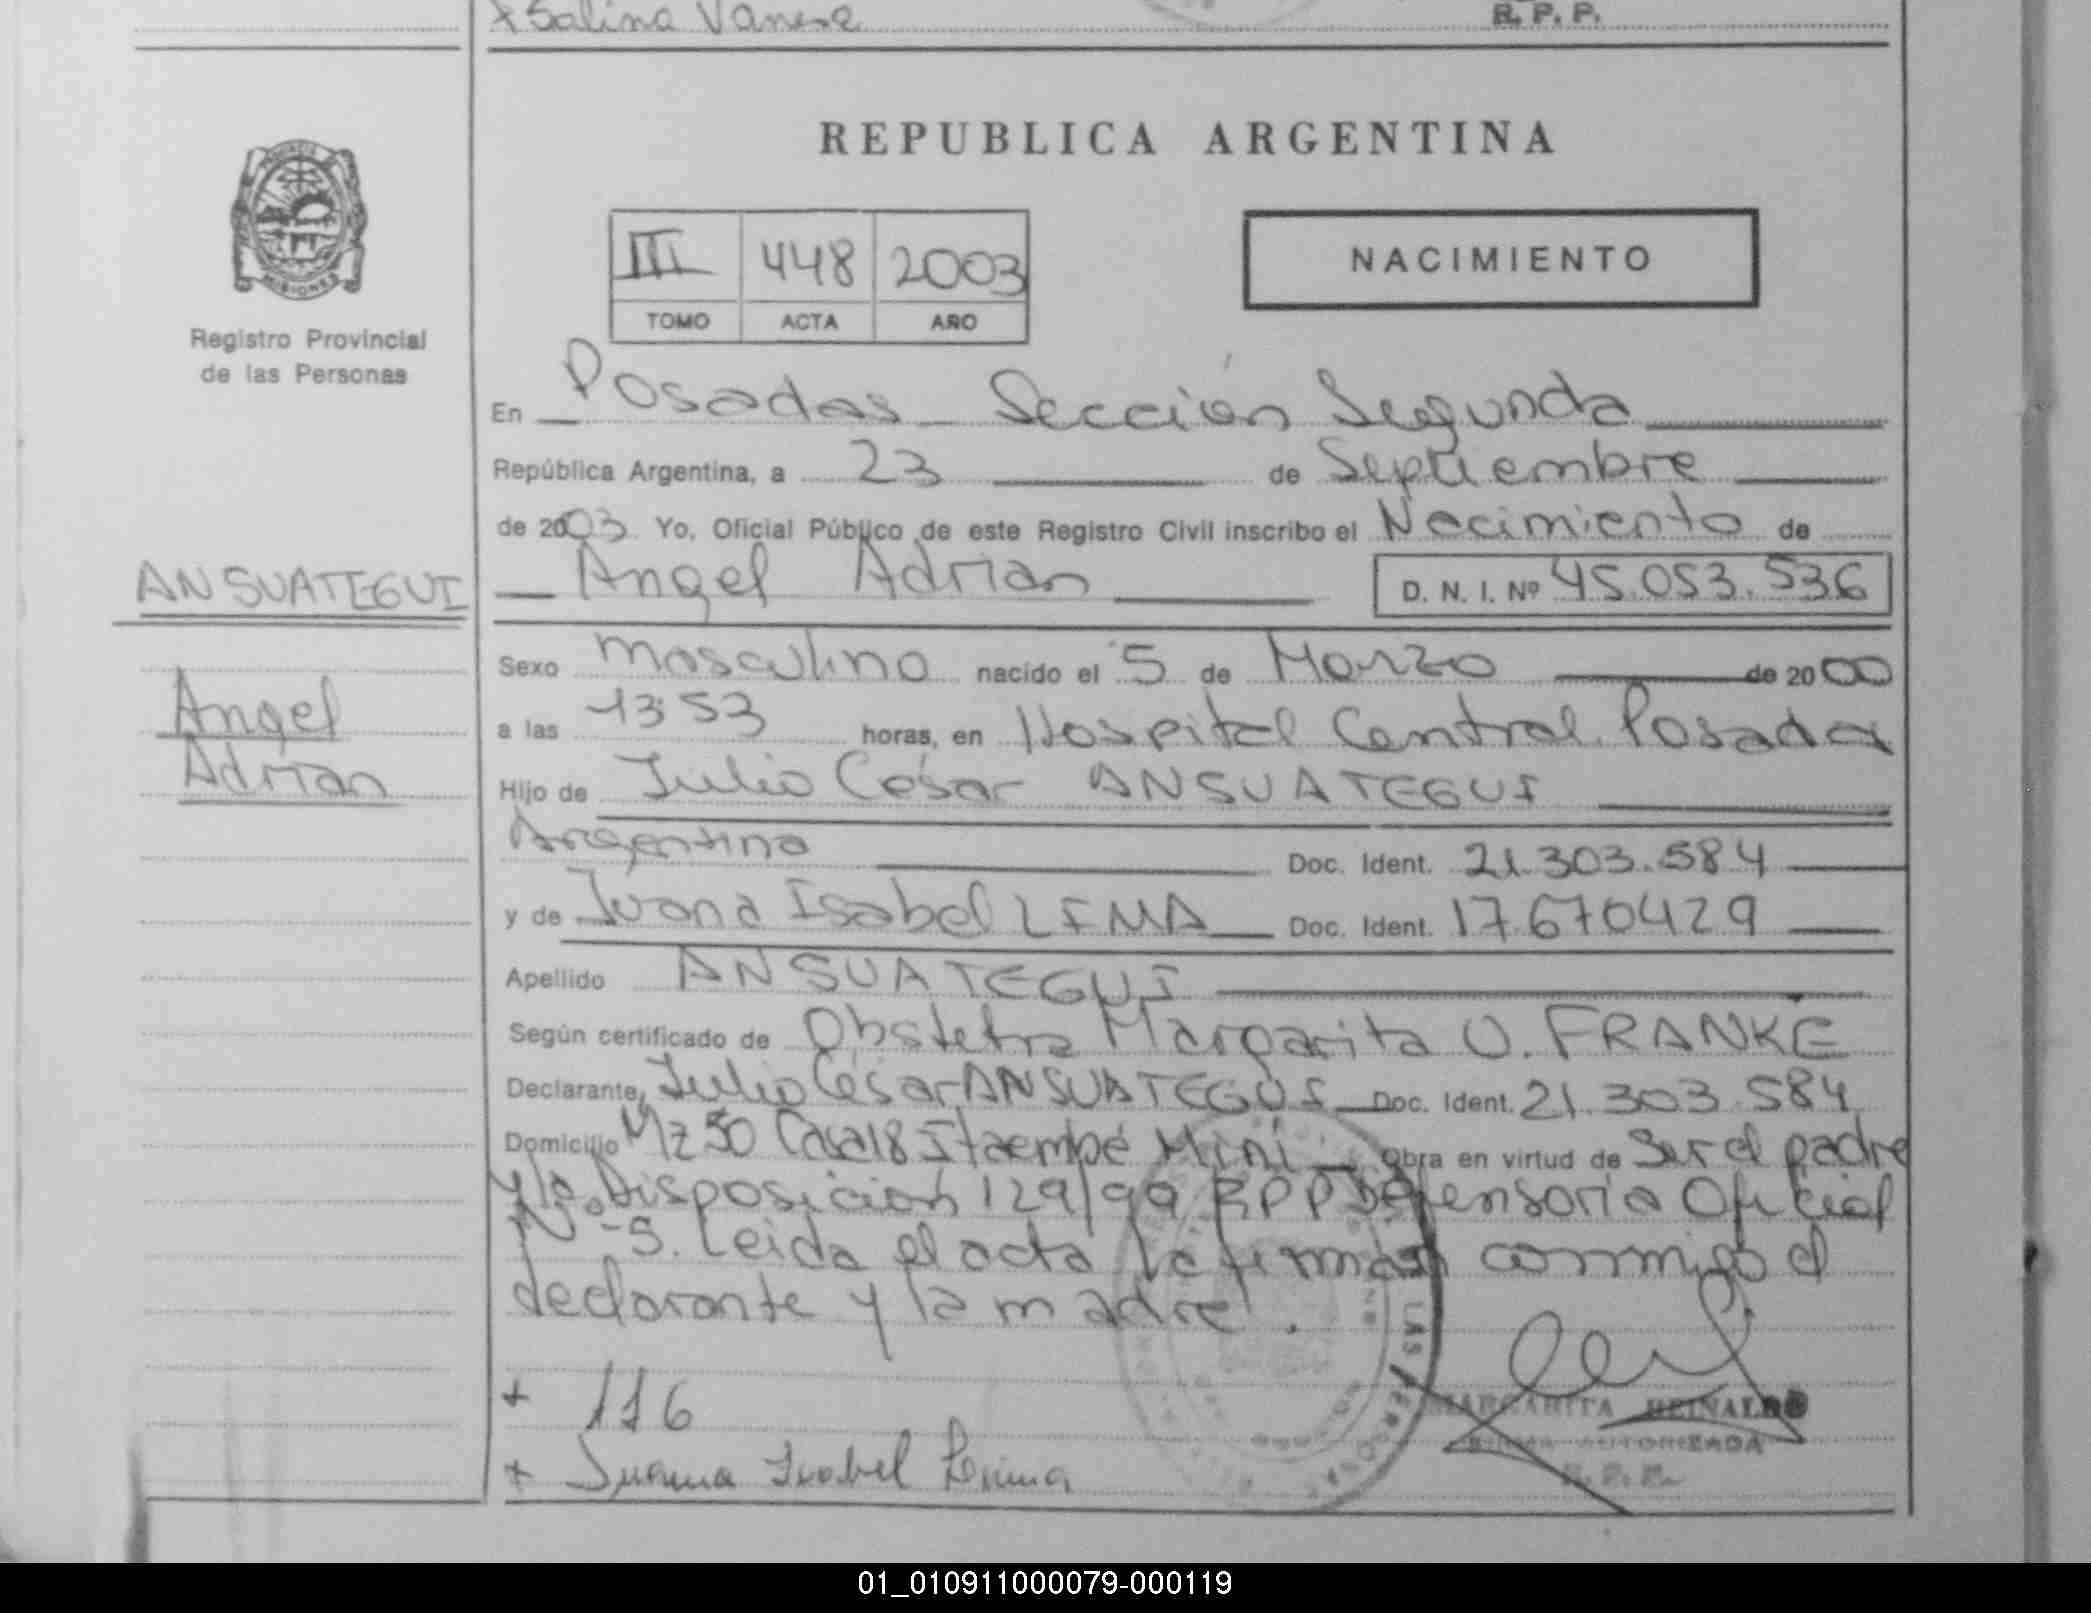 + Salina Vanesa
R. P. P.
REPUBLICA ARGENTINA
PROVINCIA
MISIONES
Registro Provincial
de las Personas
III 448 2003
TOMO ACTA AÑO
NACIMIENTO
En Posadas Sección Segunda
República Argentina, a 23 de Septiembre
de 2003 Yo, Oficial Público de este Registro Civil inscribo el Nacimiento de
ANSUATEGUI
Angel Adrian D. N. I. Nº 45.053.536
Angel
Adrian
Sexo masculino nacido el 5 de Marzo de 2000
a las 13:53 horas, en Hospital Central Posadas
Hijo de Julio César ANSUATEGUI
Argentina Doc. Ident. 21.303.584
y de Juana Isabel LEMA Doc. Ident. 17670429
Apellido ANSUATEGUI
Según certificado de Obstetra Margarita O. FRANKE
Declarante, Julio César ANSUATEGUI Doc. Ident. 21.303.584
Domicilio Mz 50 Casa 18 Itaembé Miní Obra en virtud de Ser el padre
y la Disposición 129/99 RPP Defensoría Oficial
Nº 5. Leída el acta la firman conmigo el
declarante y la madre.
LAS PERSONAS
+
+ Juana Isabel Lema
MARGARITA REINALDO
FIRMA AUTORIZADA
R. P. P.
01_010911000079-000119